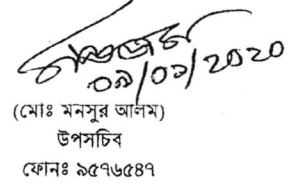 ০৯/০১/২০২০
(মোঃ মনসুর আলম)
উপসচিব
ফোনঃ ৯৫৭৬৫৪৭